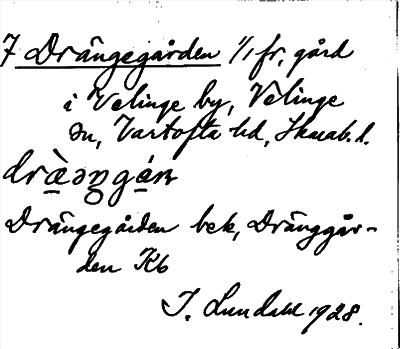 7 Drängegården 1/1 fr. gård
i Velinge by, Velinge
sn, Vartofta hd, Skarab. l.
Drängegården bek, Dränggår-
den Kb
I. Lundahl 1928.